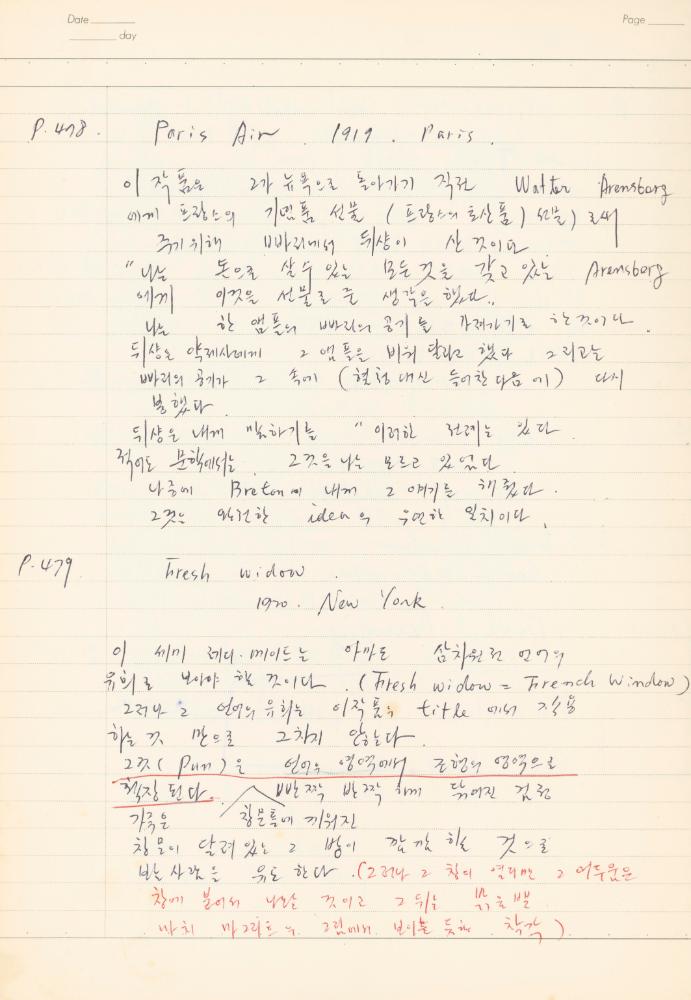 Date
Page
day
P. 478. Paris Air. 1919. Paris.
이 작품은 그가 뉴욕으로 돌아가기 직전 Walter Arensberg
에게 프랑스의 기념품 선물 (프랑스의 토산품) 선물) 로써
주기 위해 빠리에서 뒤샹이 산 것이다
"나는 돈으로 살 수 있는 모든 것을 갖고 있는 Arensberg
에게 이것을 선물로 줄 생각을 했다.,
나는 한 앰플의 빠리의 공기를 가져가기로 한 것이다.
뒤샹은 약제사에게 그 앰플을 비워 달라고 했다 그리고는
빠리의 공기가 그 속에 (혈청 대신 들어찬 다음에) 다시
봉했다.
뒤샹은 내게 말하기를 "이러한 전례는 있다
적어도 문학에서는. 그것을 나는 모르고 있었다
나중에 Breton이 내게 그 얘기를 해 줬다.
그것은 완전한 idea의 우연한 일치이다.
P. 479 Fresh widow.
1920. New York.
이 세미 레디·메이드는 아마도 삼차원적 언어의
유희로 보아야 할 것이다. (Fresh widow = French Window)
그러나 그 언어의 유희는 이 작품의 title에서 작용
하는 것 만으로 그치지 않는다.
그것(Pun)은 언어의 영역에서 조형의 영역으로
확장 된다. 빤짝 반짝 하게 닦여진 검정
가죽은 창문틀에 끼워진
창문이 달려 있는 그 방이 깜깜 하 것으로
보는 사람을 유도 한다. (그러나 그 창이 열리면 그 어두움은
창에 붙어서 나올 것이고 그 뒤는 밝음뿐
마치 마그리트의 그림에서 보이는 듯한 착각)